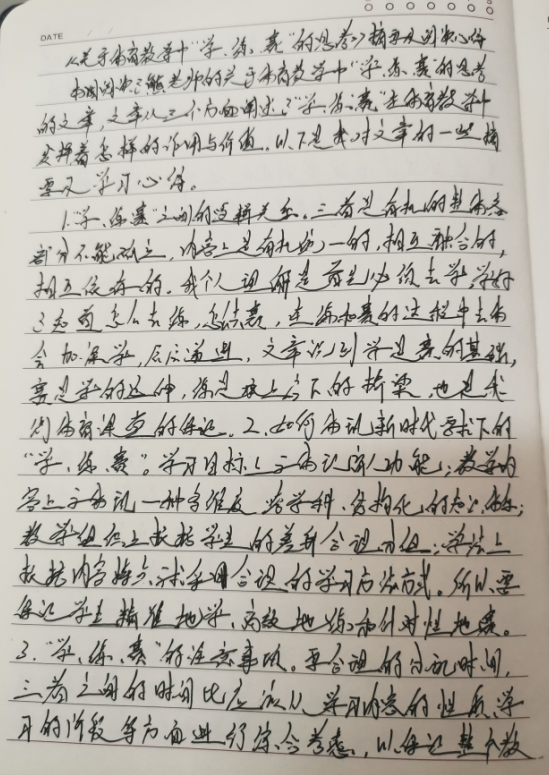 DATE
《关于体育教学中"学、练、赛"的思考》摘要及学习心得
的文章，文章从三个方面阐述了"学、练、赛"在体育教学中
发挥着怎样的作用与价值，以下是我对文章的一些摘
要及学习心得。
1."学、练、赛"之间的逻辑关系。三者是有机的整体各
部分不能孤立，内容上是有机统一的，相互融合的，
相互依存的。我个人理解是首先必须去学，学好
了知道怎么去练，怎么去赛，在练和赛的过程中去
会加深学，层层递进，文章说到学是赛的基础，
赛是学的延伸，练是承上启下的桥梁，也是我
们体育课堂的保证。2、如何体现新时代要求下的
"学、练、赛"。学习目标上要体现育人功能；教学内
容上要体现一种多维度、跨学科、结构化的知识体系；
教学组织上根据学生的差异合理分组；学法上
根据内容特点，采用合理的学习方法方式。所以要
保证学生精准地学、高效地练和针对性地赛。
3."学、练、赛"的注意事项。要合理的分配时间，
三者之间的时间比应该从学习内容的性质、学
习的阶段等方面进行综合考虑，以保证整个教